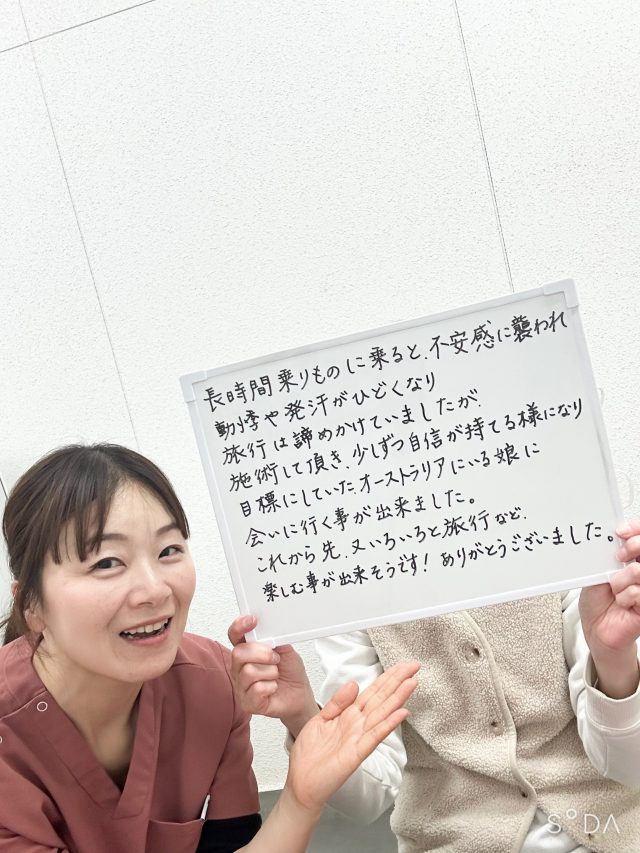 長時間乗りものに乗ると、不安感に襲われ
動悸や発汗がひどくなり
旅行は諦めかけていましたが、
施術して頂き、少しずつ自信が持てる様になり
目標にしていた、オーストラリアにいる娘に
会いに行く事が出来ました。
これから先、又いろいろと旅行など、
楽しむ事が出来そうです！ ありがとうございました。
SODA